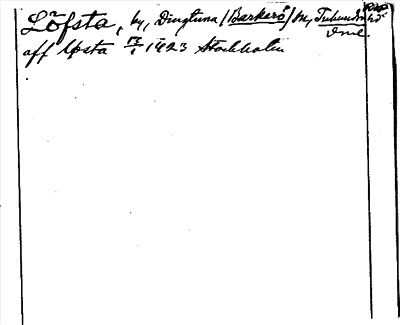 Löfsta, by, Dingtuna /Barkarö/ sn, Tuhundra hd
Vml.
aff Lösta 13/1 1423 Stockholm